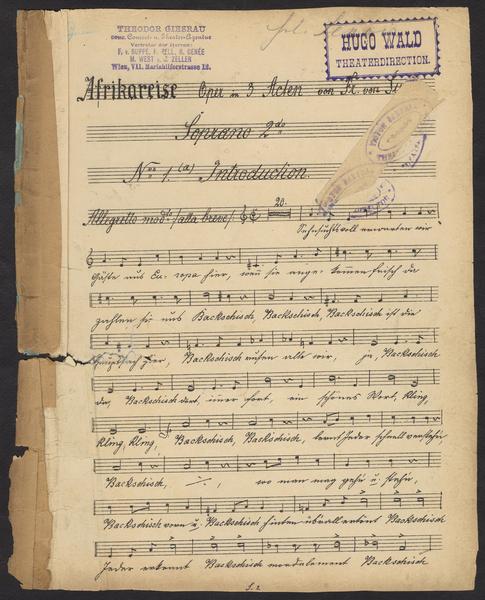 THEODOR GIESRAU
conc. Concert- u. Theater-Agentur
Vertreter der Herren:
F. v. SUPPÉ, F. ZELL, R. GENÉE
M. WEST u. C. ZELLER
Wien, VII. Mariahilferstrasse 12.
HUGO WALD
THEATERDIRECTION.
Afrikareise Oper in 3 Acten von Fr. von
Soprano 2do
Nro 1. (a) Introduction.
Allegretto modto /alla breve/ 20.
Sehnsuchtsvoll erwarten wir
Gäste aus Eu- ropa hier, wenn sie ange- kommen frisch da
zahlen sie uns Backschisch, Backschisch, Backschisch ist die
Hauptsach hier, Backschisch rufen alle wir, ja, Backschisch
da, Backschisch dort, immer fort, ein schönes Wort, kling,
kling, kling, Backschisch, Backschisch, lernt Jeder schnell verstehn,
Backschisch, wo man mag gehn u. stehn,
Backschisch vorn u. Backschisch hinten überall ertönt Backschisch
Jeder erkennt Backschisch Backschisch
S. 2